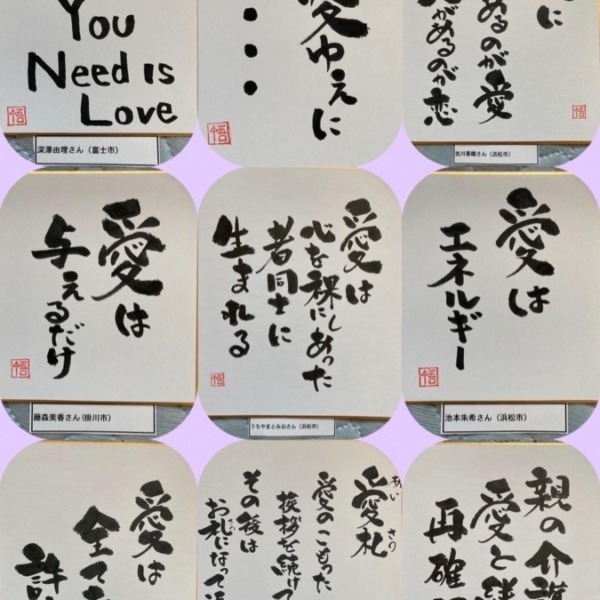 You
Need is
Love
悟
深澤由理さん（富士市）
愛ゆえに
・・・
悟
に
あるのが愛
があるのが恋
悟
愛は
与えるだけ
悟
藤森美香さん（掛川市）
愛は
心を裸にしあった
者同士に
生まれる
悟
うちやまとみおさん（浜松市）
愛は
エネルギー
悟
池本朱希さん（浜松市）
愛は
全て
許
愛札
あい
愛のこもった
挨拶を続けて
その後は
お礼になって
親の介護
愛と
再確